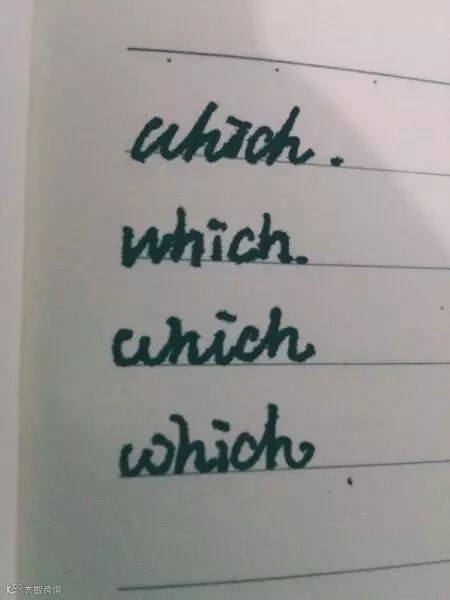 which.
which.
which
which
大数跨境